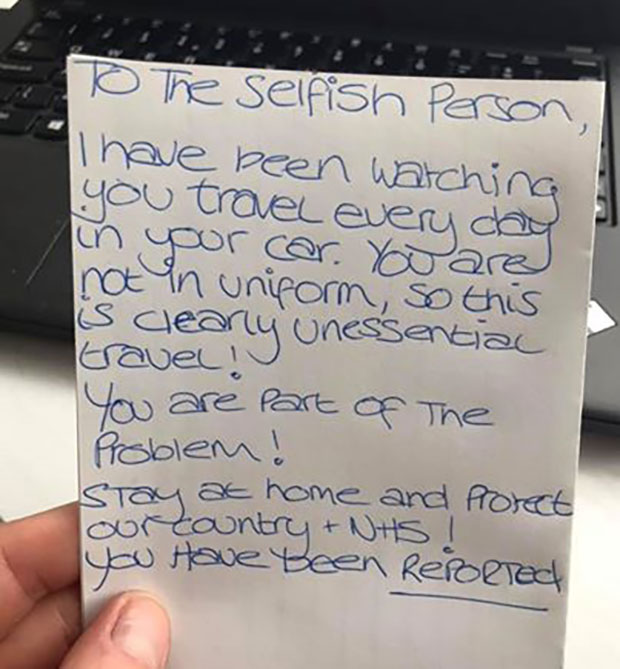 To The Selfish Person,
I have been watching
you travel every day
in your car. You are
not in uniform, so this
is clearly unessential
travel!
You are Part of The
Problem!
Stay at home and Protect
our country + NHS!
You Have been RePORTed